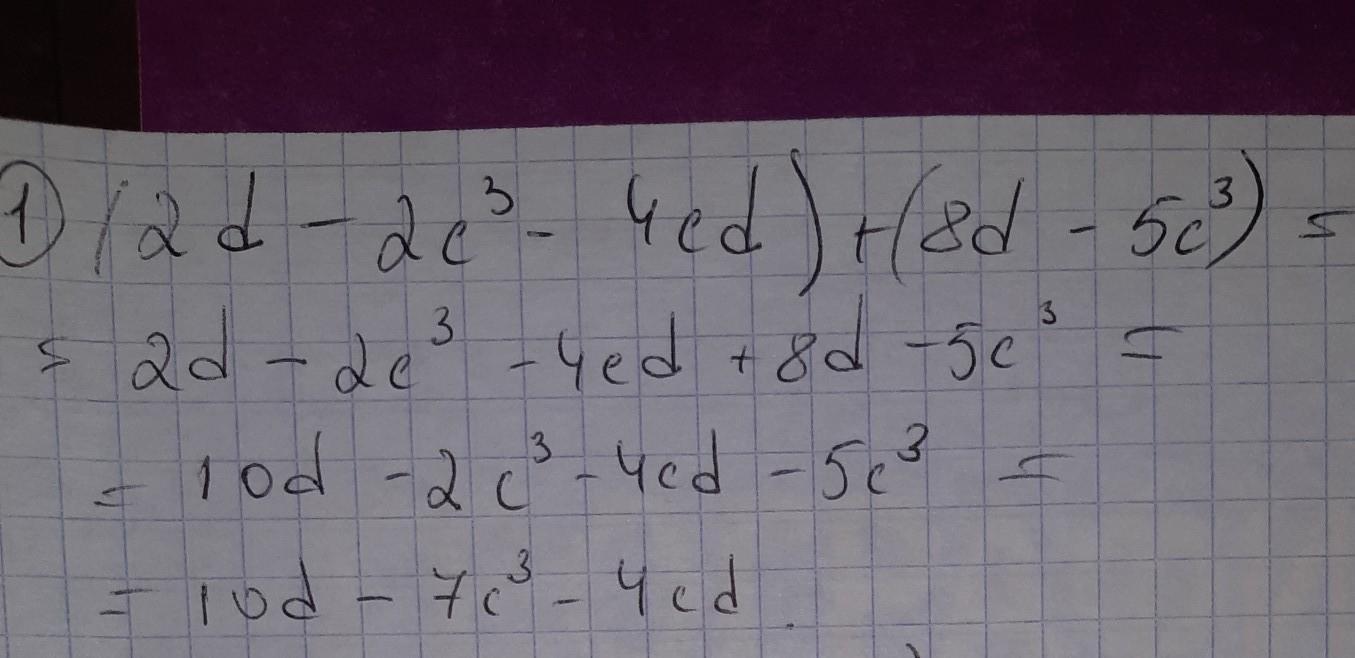 ① (2d - 2c³ - 4cd) + (8d - 5c³) =
= 2d - 2c³ - 4cd + 8d - 5c³ =
= 10d - 2c³ - 4cd - 5c³ =
= 10d - 7c³ - 4cd.